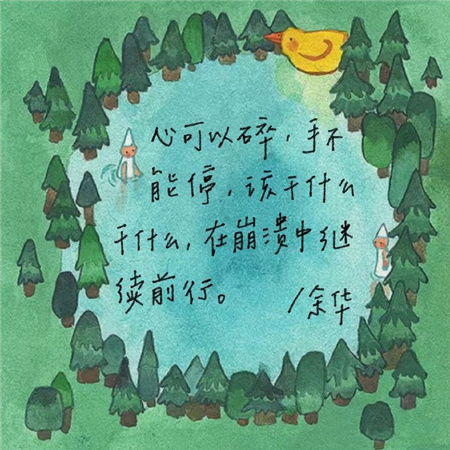 心可以碎，手不
能停，该干什么
干什么，在崩溃中继
续前行。
/余华